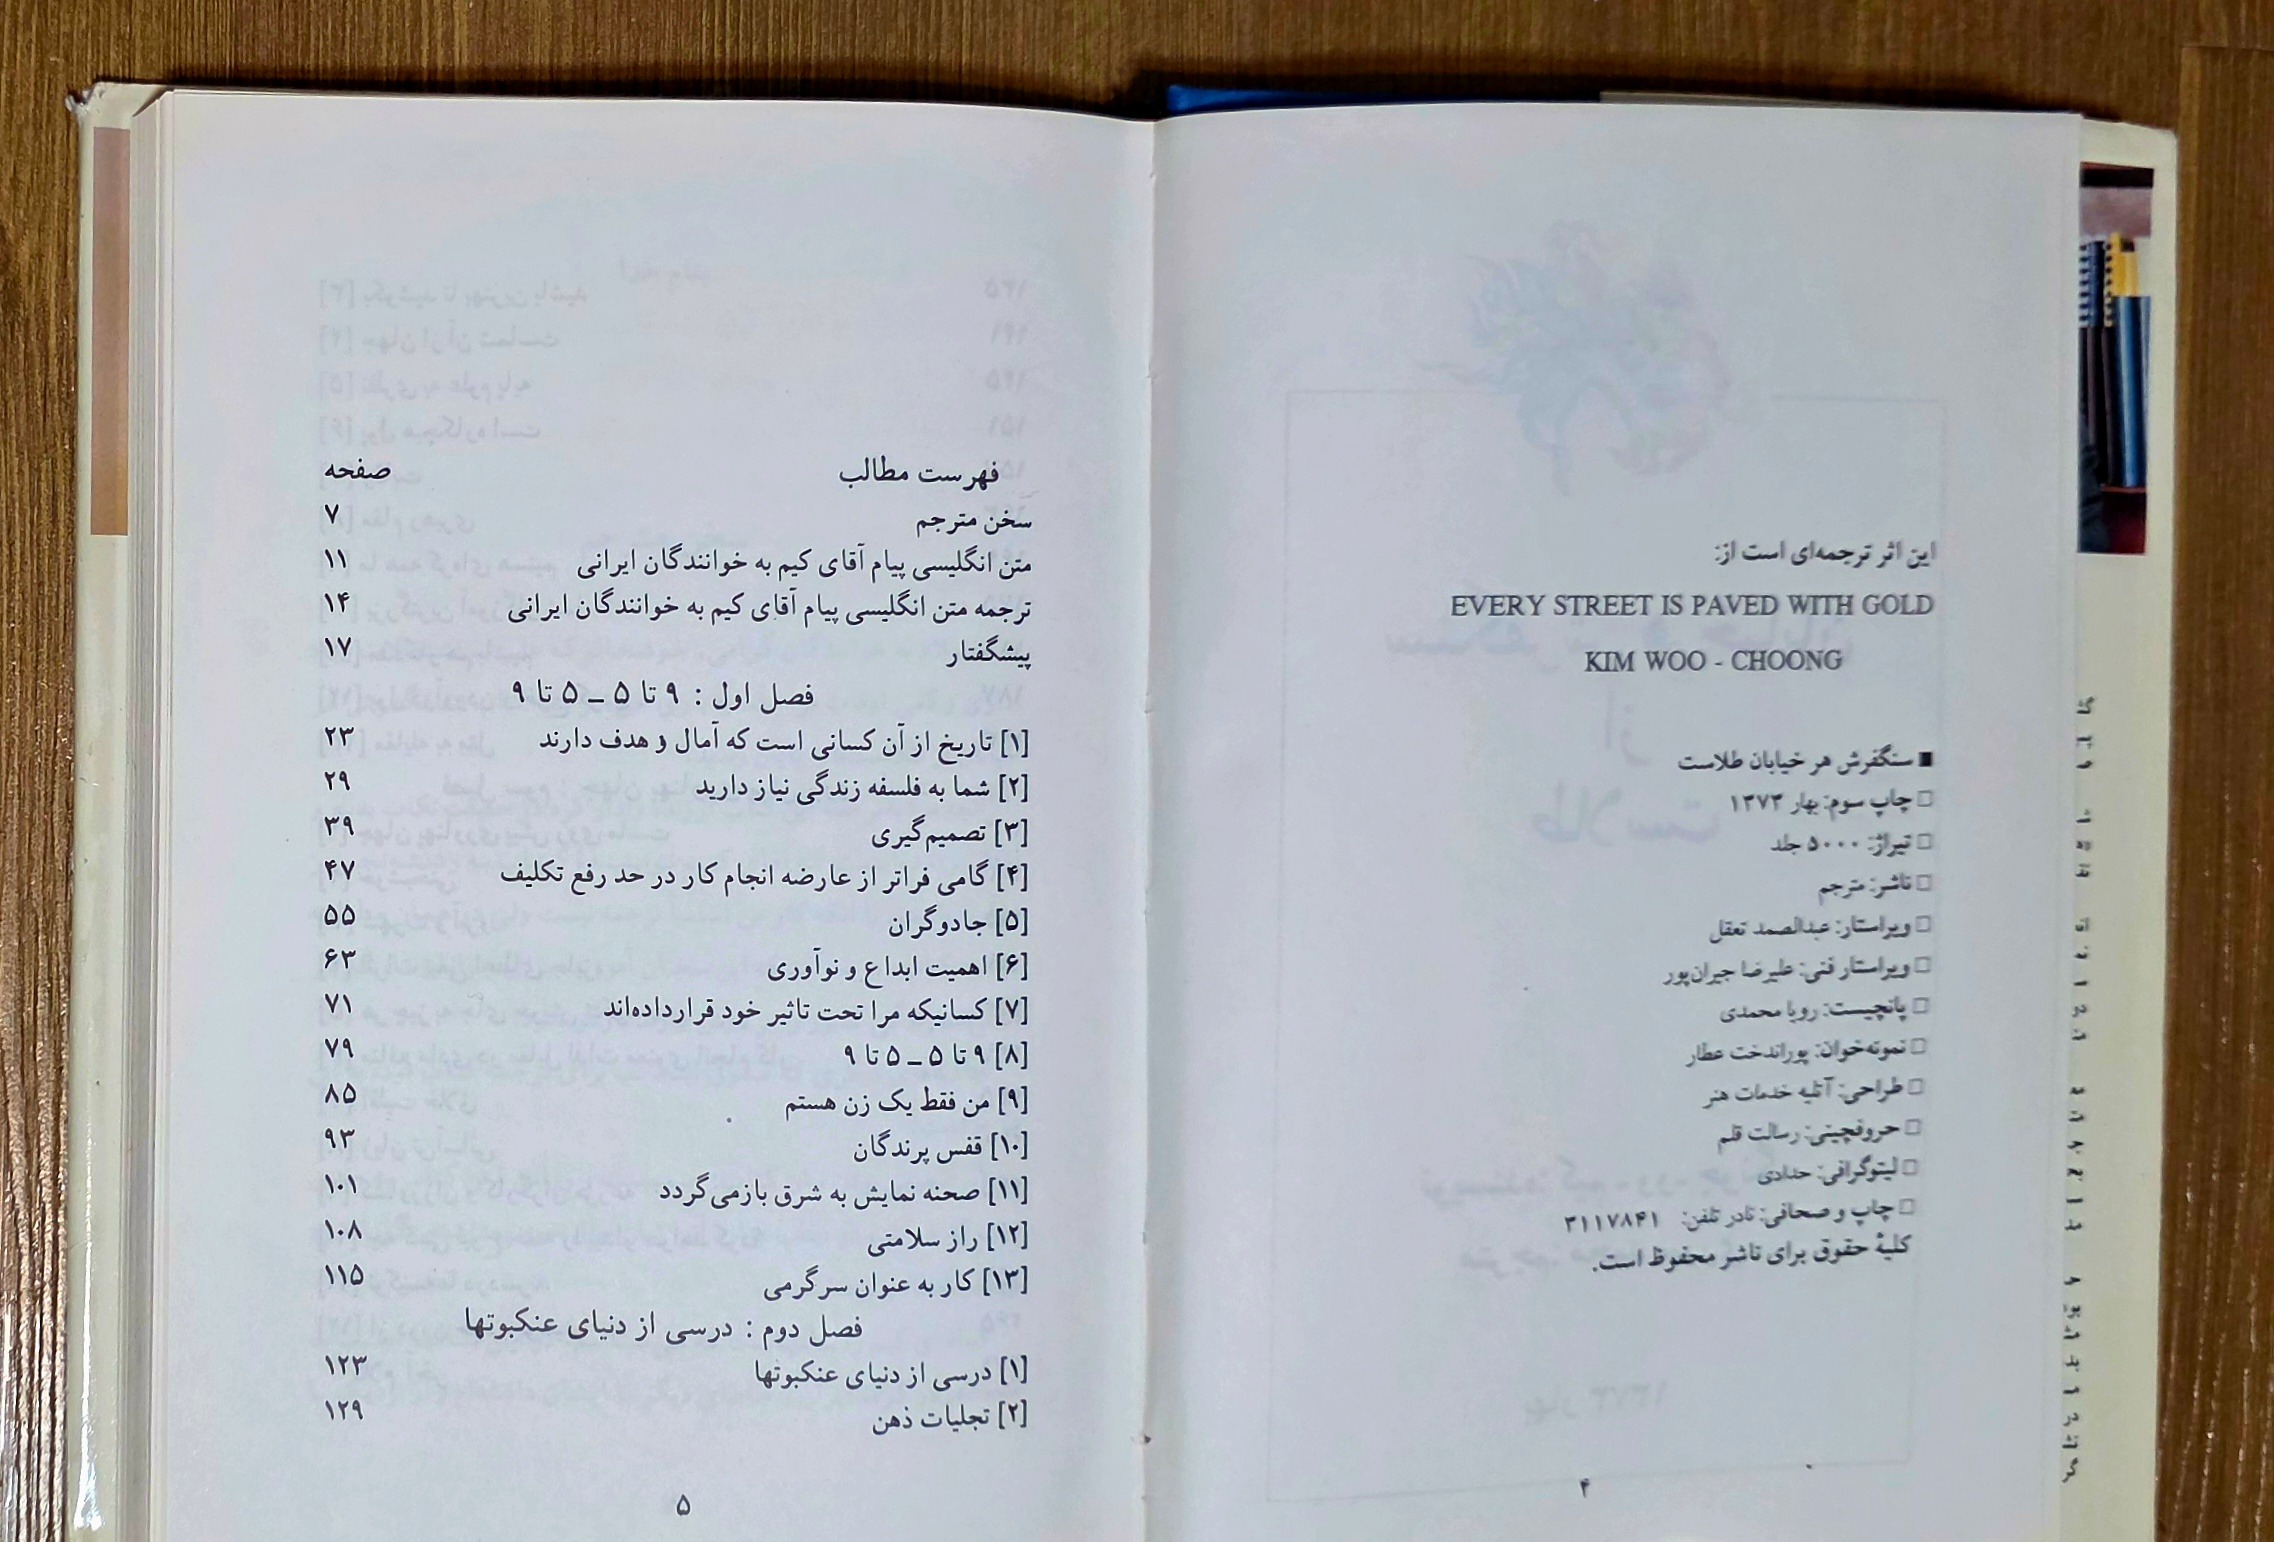 این اثر ترجمه‌ای است از:
EVERY STREET IS PAVED WITH GOLD
KIM WOO - CHOONG
■ سنگفرش هر خیابان طلاست
□ چاپ سوم: بهار ۱۳۷۳
□ تیراژ: ۵۰۰۰ جلد
□ ناشر: مترجم
□ ویراستار: عبدالصمد تعقل
□ ویراستار فنی: علیرضا جیران‌پور
□ پانچیست: رویا محمدی
□ نمونه‌خوان: پوراندخت عطار
□ طراحی: آتلیه خدمات هنر
□ حروفچینی: رسالت قلم
□ لیتوگرافی: حدادی
□ چاپ و صحافی: نادر تلفن: ۳۱۱۷۸۴۱
کلیهٔ حقوق برای ناشر محفوظ است.
۴
فهرست مطالب صفحه
سخن مترجم ۷
متن انگلیسی پیام آقای کیم به خوانندگان ایرانی ۱۱
ترجمه متن انگلیسی پیام آقای کیم به خوانندگان ایرانی ۱۴
پیشگفتار ۱۷
فصل اول : ۹ تا ۵ ـ ۵ تا ۹
[۱] تاریخ از آن کسانی است که آمال و هدف دارند ۲۳
[۲] شما به فلسفه زندگی نیاز دارید ۲۹
[۳] تصمیم‌گیری ۳۹
[۴] گامی فراتر از عارضه انجام کار در حد رفع تکلیف ۴۷
[۵] جادوگران ۵۵
[۶] اهمیت ابداع و نوآوری ۶۳
[۷] کسانیکه مرا تحت تاثیر خود قرارداده‌اند ۷۱
[۸] ۹ تا ۵ ـ ۵ تا ۹ ۷۹
[۹] من فقط یک زن هستم ۸۵
[۱۰] قفس پرندگان ۹۳
[۱۱] صحنه نمایش به شرق بازمی‌گردد ۱۰۱
[۱۲] راز سلامتی ۱۰۸
[۱۳] کار به عنوان سرگرمی ۱۱۵
فصل دوم : درسی از دنیای عنکبوتها
[۱] درسی از دنیای عنکبوتها ۱۲۳
[۲] تجلیات ذهن ۱۲۹
۵